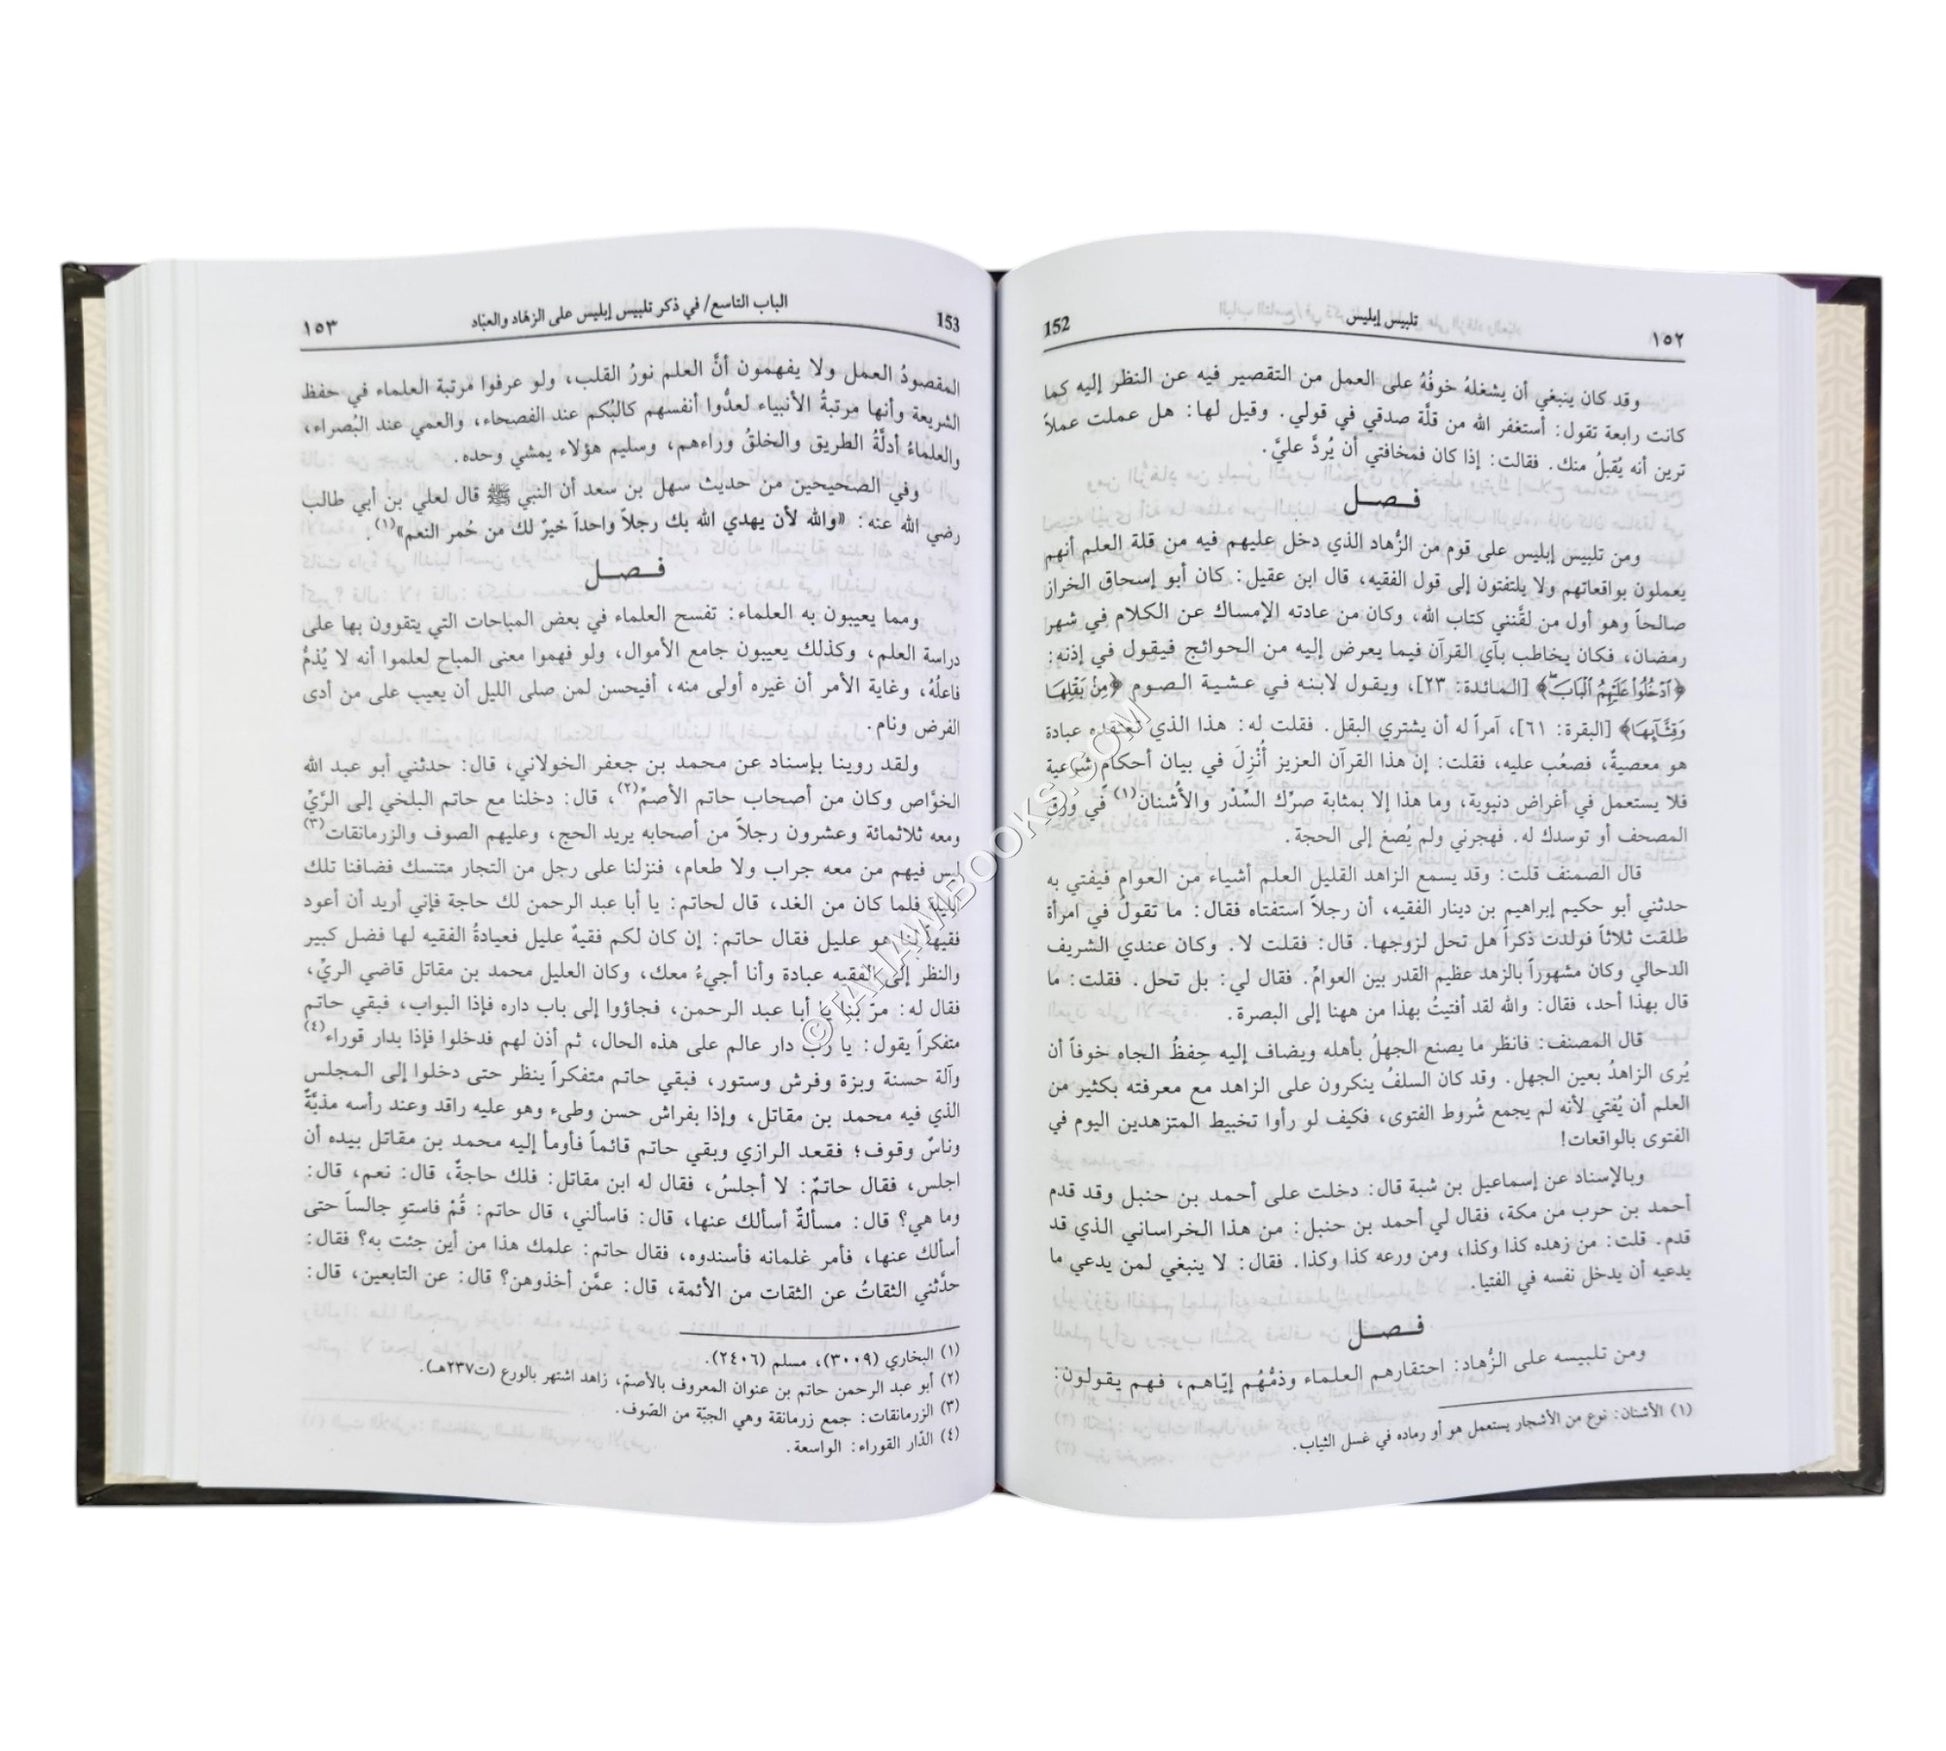 ١٥٢ تلبيس إبليس 152
وقد كان ينبغي أن يشغلهُ خوفُهُ على العمل من التقصير فيه عن النظر إليه كما
كانت رابعة تقول: أستغفر الله من قلَّة صدقي في قولي. وقيل لها: هل عملت عملاً
ترين أنه يُقبلُ منك. فقالت: إذا كان فمخافتي أن يُردَّ عليَّ.
فصل
ومن تلبيس إبليس على قوم من الزُّهاد الذي دخل عليهم فيه من قلة العلم أنهم
يعملون بواقعاتهم ولا يلتفتون إلى قول الفقيه، قال ابن عقيل: كان أبو إسحاق الخراز
صالحاً وهو أول من لقَّنني كتاب الله، وكان من عادته الإمساك عن الكلام في شهر
رمضان، فكان يخاطب بآي القرآن فيما يعرض إليه من الحوائج فيقول في إذنه:
﴿ٱدْخُلُوا۟ عَلَيْهِمُ ٱلْبَابَ﴾ [المائدة: ٢٣]، ويقول لابنه في عشية الصوم ﴿مِنۢ بَقْلِهَا
وَقِثَّآئِهَا﴾ [البقرة: ٦١]، آمراً له أن يشتري البقل. فقلت له: هذا الذي تعتقده عبادة
هو معصيةٌ، فصعُب عليه، فقلت: إن هذا القرآن العزيز أُنْزِلَ في بيان أحكام شرعية
فلا يستعمل في أغراض دنيوية، وما هذا إلا بمثابة صرِّك السِّدْر والأُشنان(١) في ورق
المصحف أو توسدك له. فهجرني ولم يُصغ إلى الحجة.
قال الصمنف قلت: وقد يسمع الزاهد القليل العلم أشياء من العوام فيفتي به
حدثني أبو حكيم إبراهيم بن دينار الفقيه، أن رجلاً استفتاه فقال: ما تقولُ في امرأة
طلقت ثلاثاً فولدت ذكراً هل تحل لزوجها. قال: فقلت لا. وكان عندي الشريف
الدحالي وكان مشهوراً بالزهد عظيم القدر بين العوامِّ. فقال لي: بل تحل. فقلت: ما
قال بهذا أحد، فقال: والله لقد أفتيتُ بهذا من ههنا إلى البصرة.
قال المصنف: فانظر ما يصنع الجهلُ بأهله ويضاف إليه حِفظُ الجاهِ خوفاً أن
يُرى الزاهدُ بعين الجهل. وقد كان السلفُ ينكرون على الزاهد مع معرفته بكثير من
العلم أن يُفتي لأنه لم يجمع شُروط الفتوى، فكيف لو رأوا تخبيط المتزهدين اليوم في
الفتوى بالواقعات!
وبالإسناد عن إسماعيل بن شبة قال: دخلت على أحمد بن حنبل وقد قدم
أحمد بن حرب من مكة، فقال لي أحمد بن حنبل: من هذا الخراساني الذي قد
قدم. قلت: من زهده كذا وكذا، ومن ورعه كذا وكذا. فقال: لا ينبغي لمن يدعي ما
يدعيه أن يدخل نفسه في الفتيا.
فصل
ومن تلبيسه على الزُّهاد: احتقارهم العلماء وذمُّهُم إيّاهم، فهم يقولون:
(١) الأشنان: نوع من الأشجار يستعمل هو أو رماده في غسل الثياب.
153 الباب التاسع/ في ذكر تلبيس إبليس على الزهّاد والعبّاد ١٥٣
المقصودُ العمل ولا يفهمون أنَّ العلم نورُ القلب، ولو عرفوا مرتبة العلماء في حفظ
الشريعة وأنها مرتبةُ الأنبياء لعدُّوا أنفسهم كالبُكم عند الفصحاء، والعمي عند البُصراء،
والعلماءُ أدلَّةُ الطريق والخلقُ وراءهم، وسليم هؤلاء يمشي وحده.
وفي الصحيحين من حديث سهل بن سعد أن النبي ﷺ قال لعلي بن أبي طالب
رضي الله عنه: «والله لأن يهدي الله بك رجلاً واحداً خيرٌ لك من حُمر النعم»(١).
فصل
ومما يعيبون به العلماء: تفسح العلماء في بعض المباحات التي يتقوون بها على
دراسة العلم، وكذلك يعيبون جامع الأموال، ولو فهموا معنى المباح لعلموا أنه لا يُذمُّ
فاعلُهُ، وغاية الأمر أن غيره أولى منه، أفيحسن لمن صلى الليل أن يعيب على من أدى
الفرض ونام.
ولقد روينا بإسناد عن محمد بن جعفر الخولاني، قال: حدثني أبو عبد الله
الخوَّاص وكان من أصحاب حاتم الأصمِّ(٢)، قال: دخلنا مع حاتم البلخي إلى الرَّيِّ
ومعه ثلاثمائة وعشرون رجلاً من أصحابه يريد الحج، وعليهم الصوف والزرمانقات(٣)
ليس فيهم من معه جراب ولا طعام، فنزلنا على رجل من التجار متنسك فضافنا تلك
الليلة فلما كان من الغد، قال لحاتم: يا أبا عبد الرحمن لك حاجة فإني أريد أن أعود
فقيهاً لنا هو عليل فقال حاتم: إن كان لكم فقيهٌ عليل فعيادةُ الفقيه لها فضل كبير
والنظر إلى الفقيه عبادة وأنا أجيءُ معك، وكان العليل محمد بن مقاتل قاضي الريِّ،
فقال له: مرّ بنا يا أبا عبد الرحمن، فجاؤوا إلى باب داره فإذا البواب، فبقي حاتم
متفكراً يقول: يا رب دار عالم على هذه الحال، ثم أذن لهم فدخلوا فإذا بدار قوراء(٤)
وآلة حسنة وبزة وفرش وستور، فبقي حاتم متفكراً ينظر حتى دخلوا إلى المجلس
الذي فيه محمد بن مقاتل، وإذا بفراش حسن وطيء وهو عليه راقد وعند رأسه مذبَّةٌ
وناسٌ وقوف؛ فقعد الرازي وبقي حاتم قائماً فأومأ إليه محمد بن مقاتل بيده أن
اجلس، فقال حاتمٌ: لا أجلسُ، فقال له ابن مقاتل: فلك حاجةٌ، قال: نعم، قال:
وما هي؟ قال: مسألةٌ أسألك عنها، قال: فاسألني، قال حاتم: قُمْ فاستوِ جالساً حتى
أسألك عنها، فأمر غلمانه فأسندوه، فقال حاتم: علمك هذا من أين جئت به؟ فقال:
حدَّثني الثقاتُ عن الثقات من الأئمة، قال: عمَّن أخذوهن؟ قال: عن التابعين، قال:
(١) البخاري (٣٠٠٩)، مسلم (٢٤٠٦).
(٢) أبو عبد الرحمن حاتم بن عنوان المعروف بالأصمّ، زاهد اشتهر بالورع (ت٢٣٧هـ).
(٣) الزرمانقات: جمع زرمانقة وهي الجبّة من الصّوف.
(٤) الدّار القوراء: الواسعة.
© TAHAWIBOOKS.COM